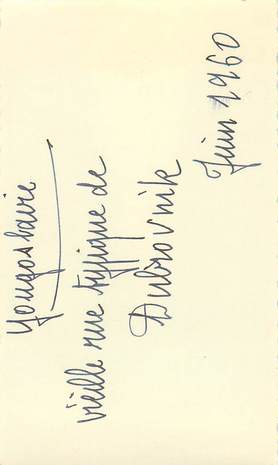 Yougoslavie
vieille rue typique de
Dubrovnik
Juin 1960